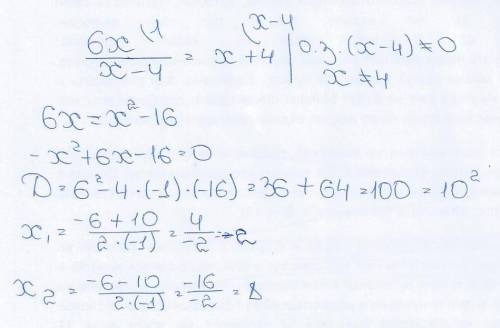 6x \1 / x-4 = x+4 \x-4 | О.З. (x-4) ≠ 0
x ≠ 4
6x = x² - 16
-x² + 6x - 16 = 0
D = 6² - 4 · (-1) · (-16) = 36 + 64 = 100 = 10²
x₁ = -6 + 10 / 2 · (-1) = 4 / -2 = -2
x₂ = -6 - 10 / 2 · (-1) = -16 / -2 = 8